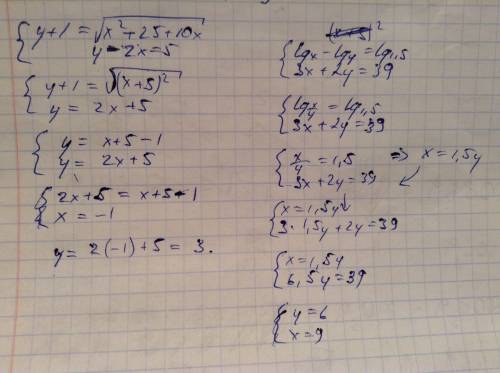 y+1 = √(x²+25+10x)
y-2x=5
y+1 = √((x+5)²)
y = 2x+5
y = x+5-1
y = 2x+5
2x+5 = x+5-1
x = -1
y = 2(-1)+5 = 3.
(x+5)²
lgx - lgy = lg1,5
3x+2y = 39
lg x/y = lg1,5
3x+2y = 39
x/y = 1,5 => x = 1,5y
3x+2y = 39
x = 1,5y
3·1,5y+2y = 39
x = 1,5y
6,5y = 39
y = 6
x = 9